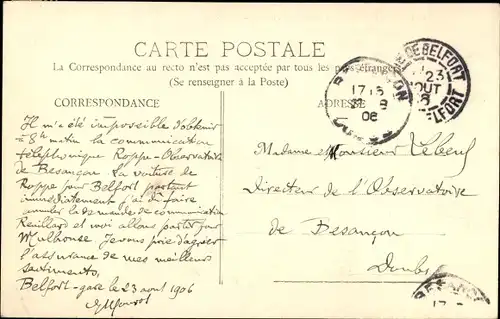 CARTE POSTALE
La Correspondance au recto n'est pas acceptée par tous les pays étrangers
(Se renseigner à la Poste)
CORRESPONDANCE
ADRESSE
Il m'a été impossible d'obtenir
à 8h matin la communication
téléphonique Roppe-Observatoire
de Besançon. La voiture de
Roppe pour Belfort partant
immédiatement j'ai dû faire
annuler la demande de communication
Reuillard et moi allons partir pour
Mulhouse. Je vous prie d'agréer
l'assurance de mes meilleurs
sentiments.
Belfort-gare le 23 aout 1906
Madame et Monsieur Lebeuf
Directeur de l'Observatoire
de Besançon
Doubs
BESANÇON
17
8
06
DOUBS
DE BELFORT
23
AOUT
BELFORT
BESANÇ
17